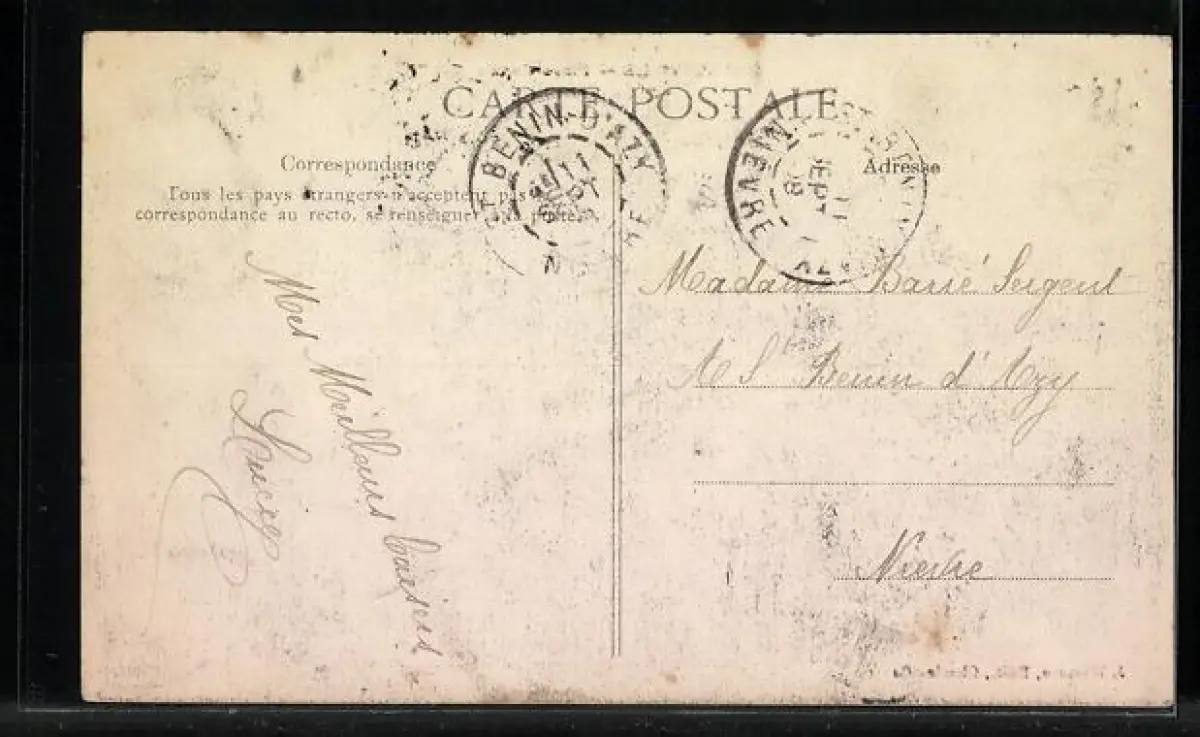 CARTE POSTALE
Correspondance
Tous les pays étrangers n'acceptent pas de
correspondance au recto, se renseigner à la poste.
Adresse
T BENIN-D'AZY
11
SEPT
NIEVRE
11
SEPT
Madame Barié Sergent
à St Benin d'Azy
Nièvre
Mes Meilleurs baisers
Lucie